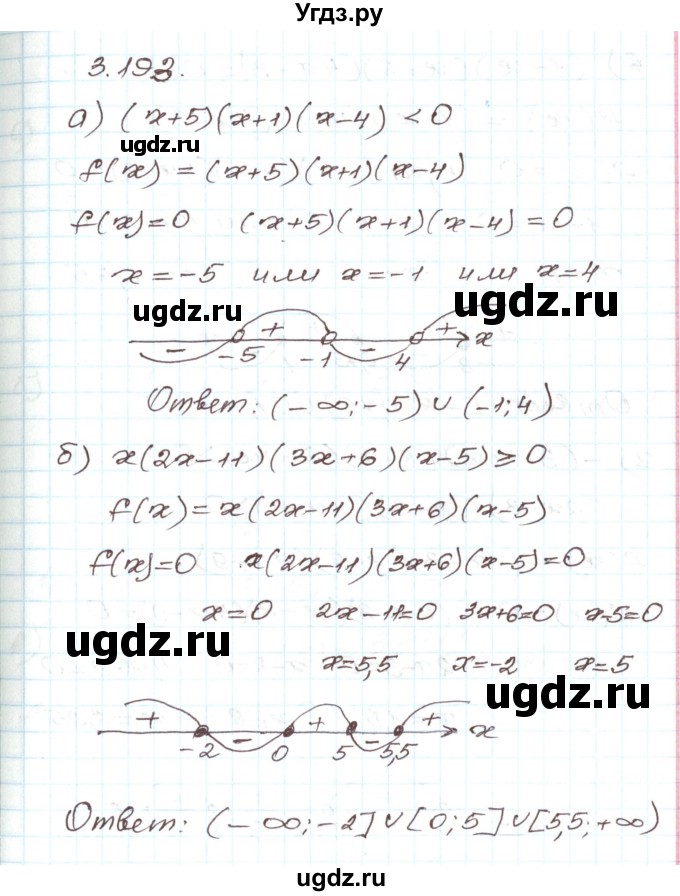 Угдз.ру
3.193.
а) (x+5)(x+1)(x-4) < 0
ugdz.ru
f(x) = (x+5)(x+1)(x-4)
f(x)=0 (x+5)(x+1)(x-4) = 0
x = -5 или x = -1 или x = 4
ugdz.ru ugdz.ru
- + - + x
-5 -1 4
Ответ: (-∞; -5) ∪ (-1; 4)
б) x(2x-11)(3x+6)(x-5) ≥ 0
f(x) = x(2x-11)(3x+6)(x-5)
f(x)=0 x(2x-11)(3x+6)(x-5) = 0
x=0 2x-11=0 3x+6=0 x-5=0
ugdz.ru
x=5,5 x=-2 x=5
ugdz.ru
+ - + - + x
-2 0 5 5,5
Ответ: (-∞; -2] ∪ [0; 5] ∪ [5,5; +∞)
ugdz.ru